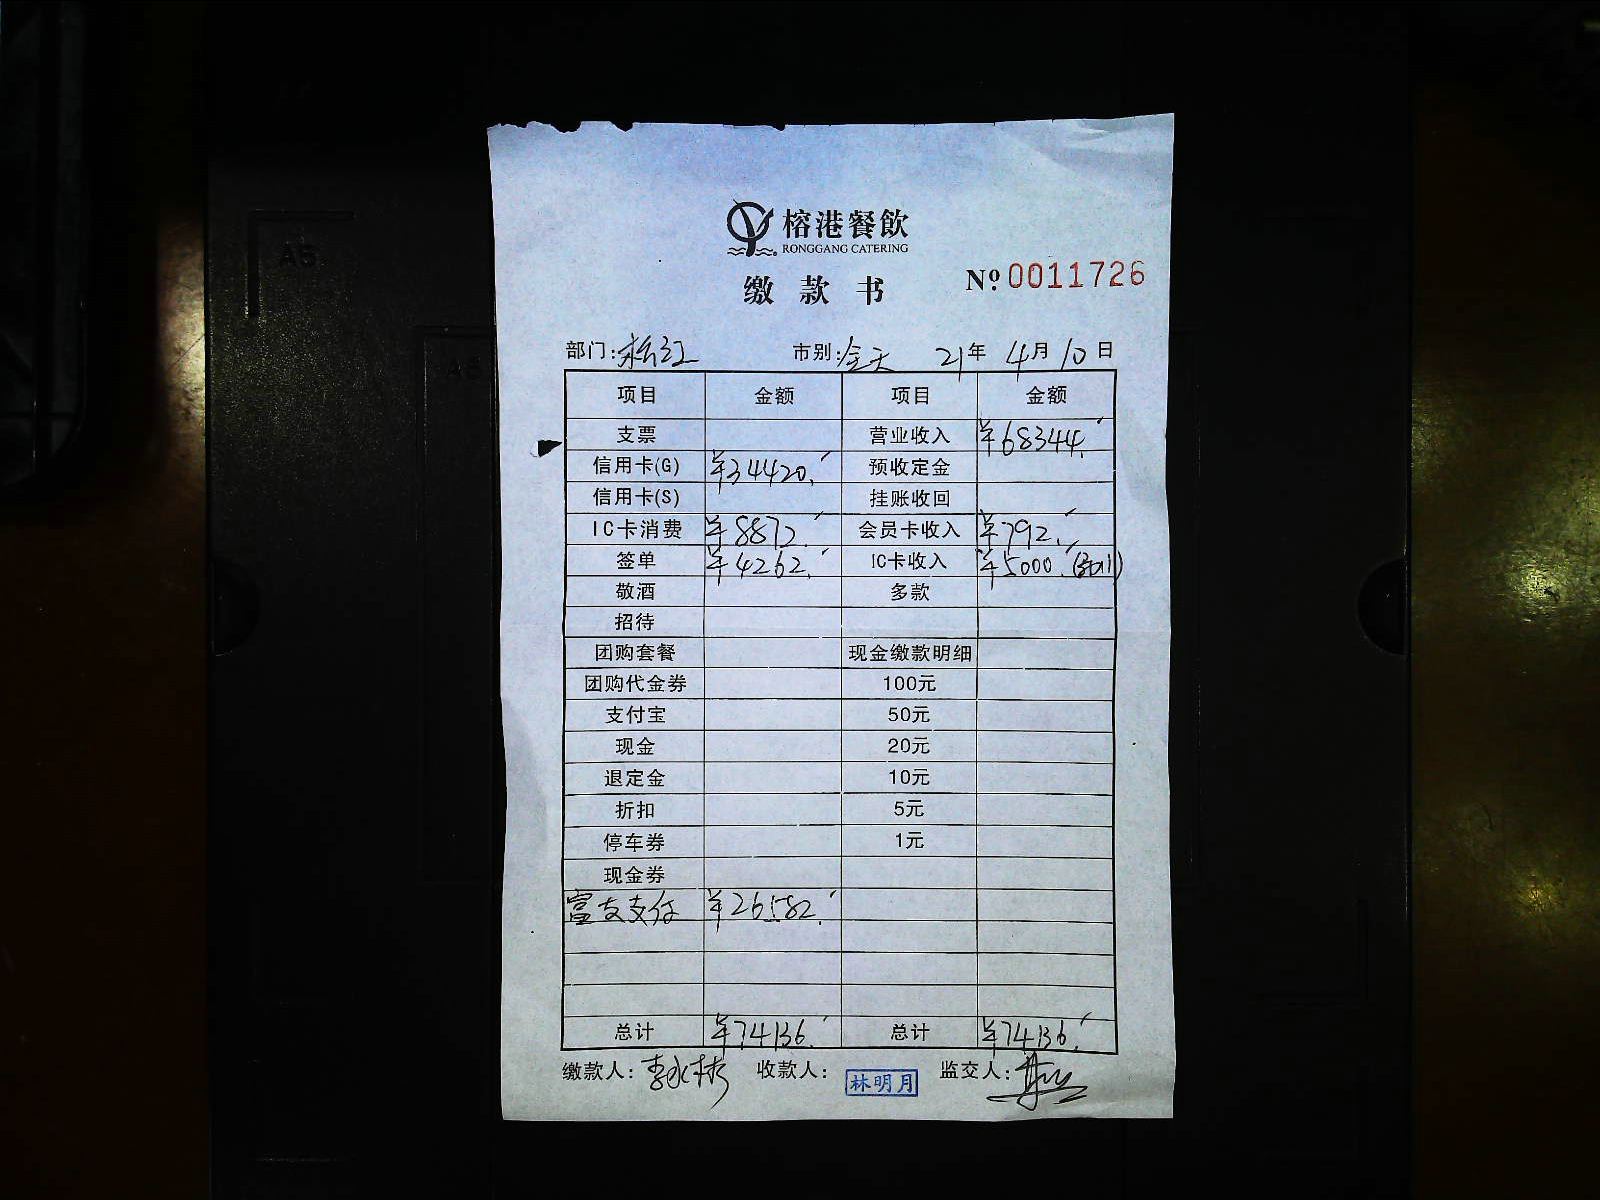 A5
A5
榕港餐飲
RONGGANG CATERING
缴款书
Nº 0011726
部门: 松江 市别: 全天 21年 4月 10日
项目 金额 项目 金额
支票 营业收入 ¥68344.
信用卡(G) ¥34420. 预收定金
信用卡(S) 挂账收回
IC卡消费 ¥8872. 会员卡收入 ¥792.
签单 ¥4262. IC卡收入 ¥5000.
敬酒 多款
招待
团购套餐 现金缴款明细
团购代金券 100元
支付宝 50元
现金 20元
退定金 10元
折扣 5元
停车券 1元
现金券
富友支付 ¥26582.
总计 ¥74136. 总计 ¥74136.
缴款人: 李永彬 收款人: 林明月 监交人: